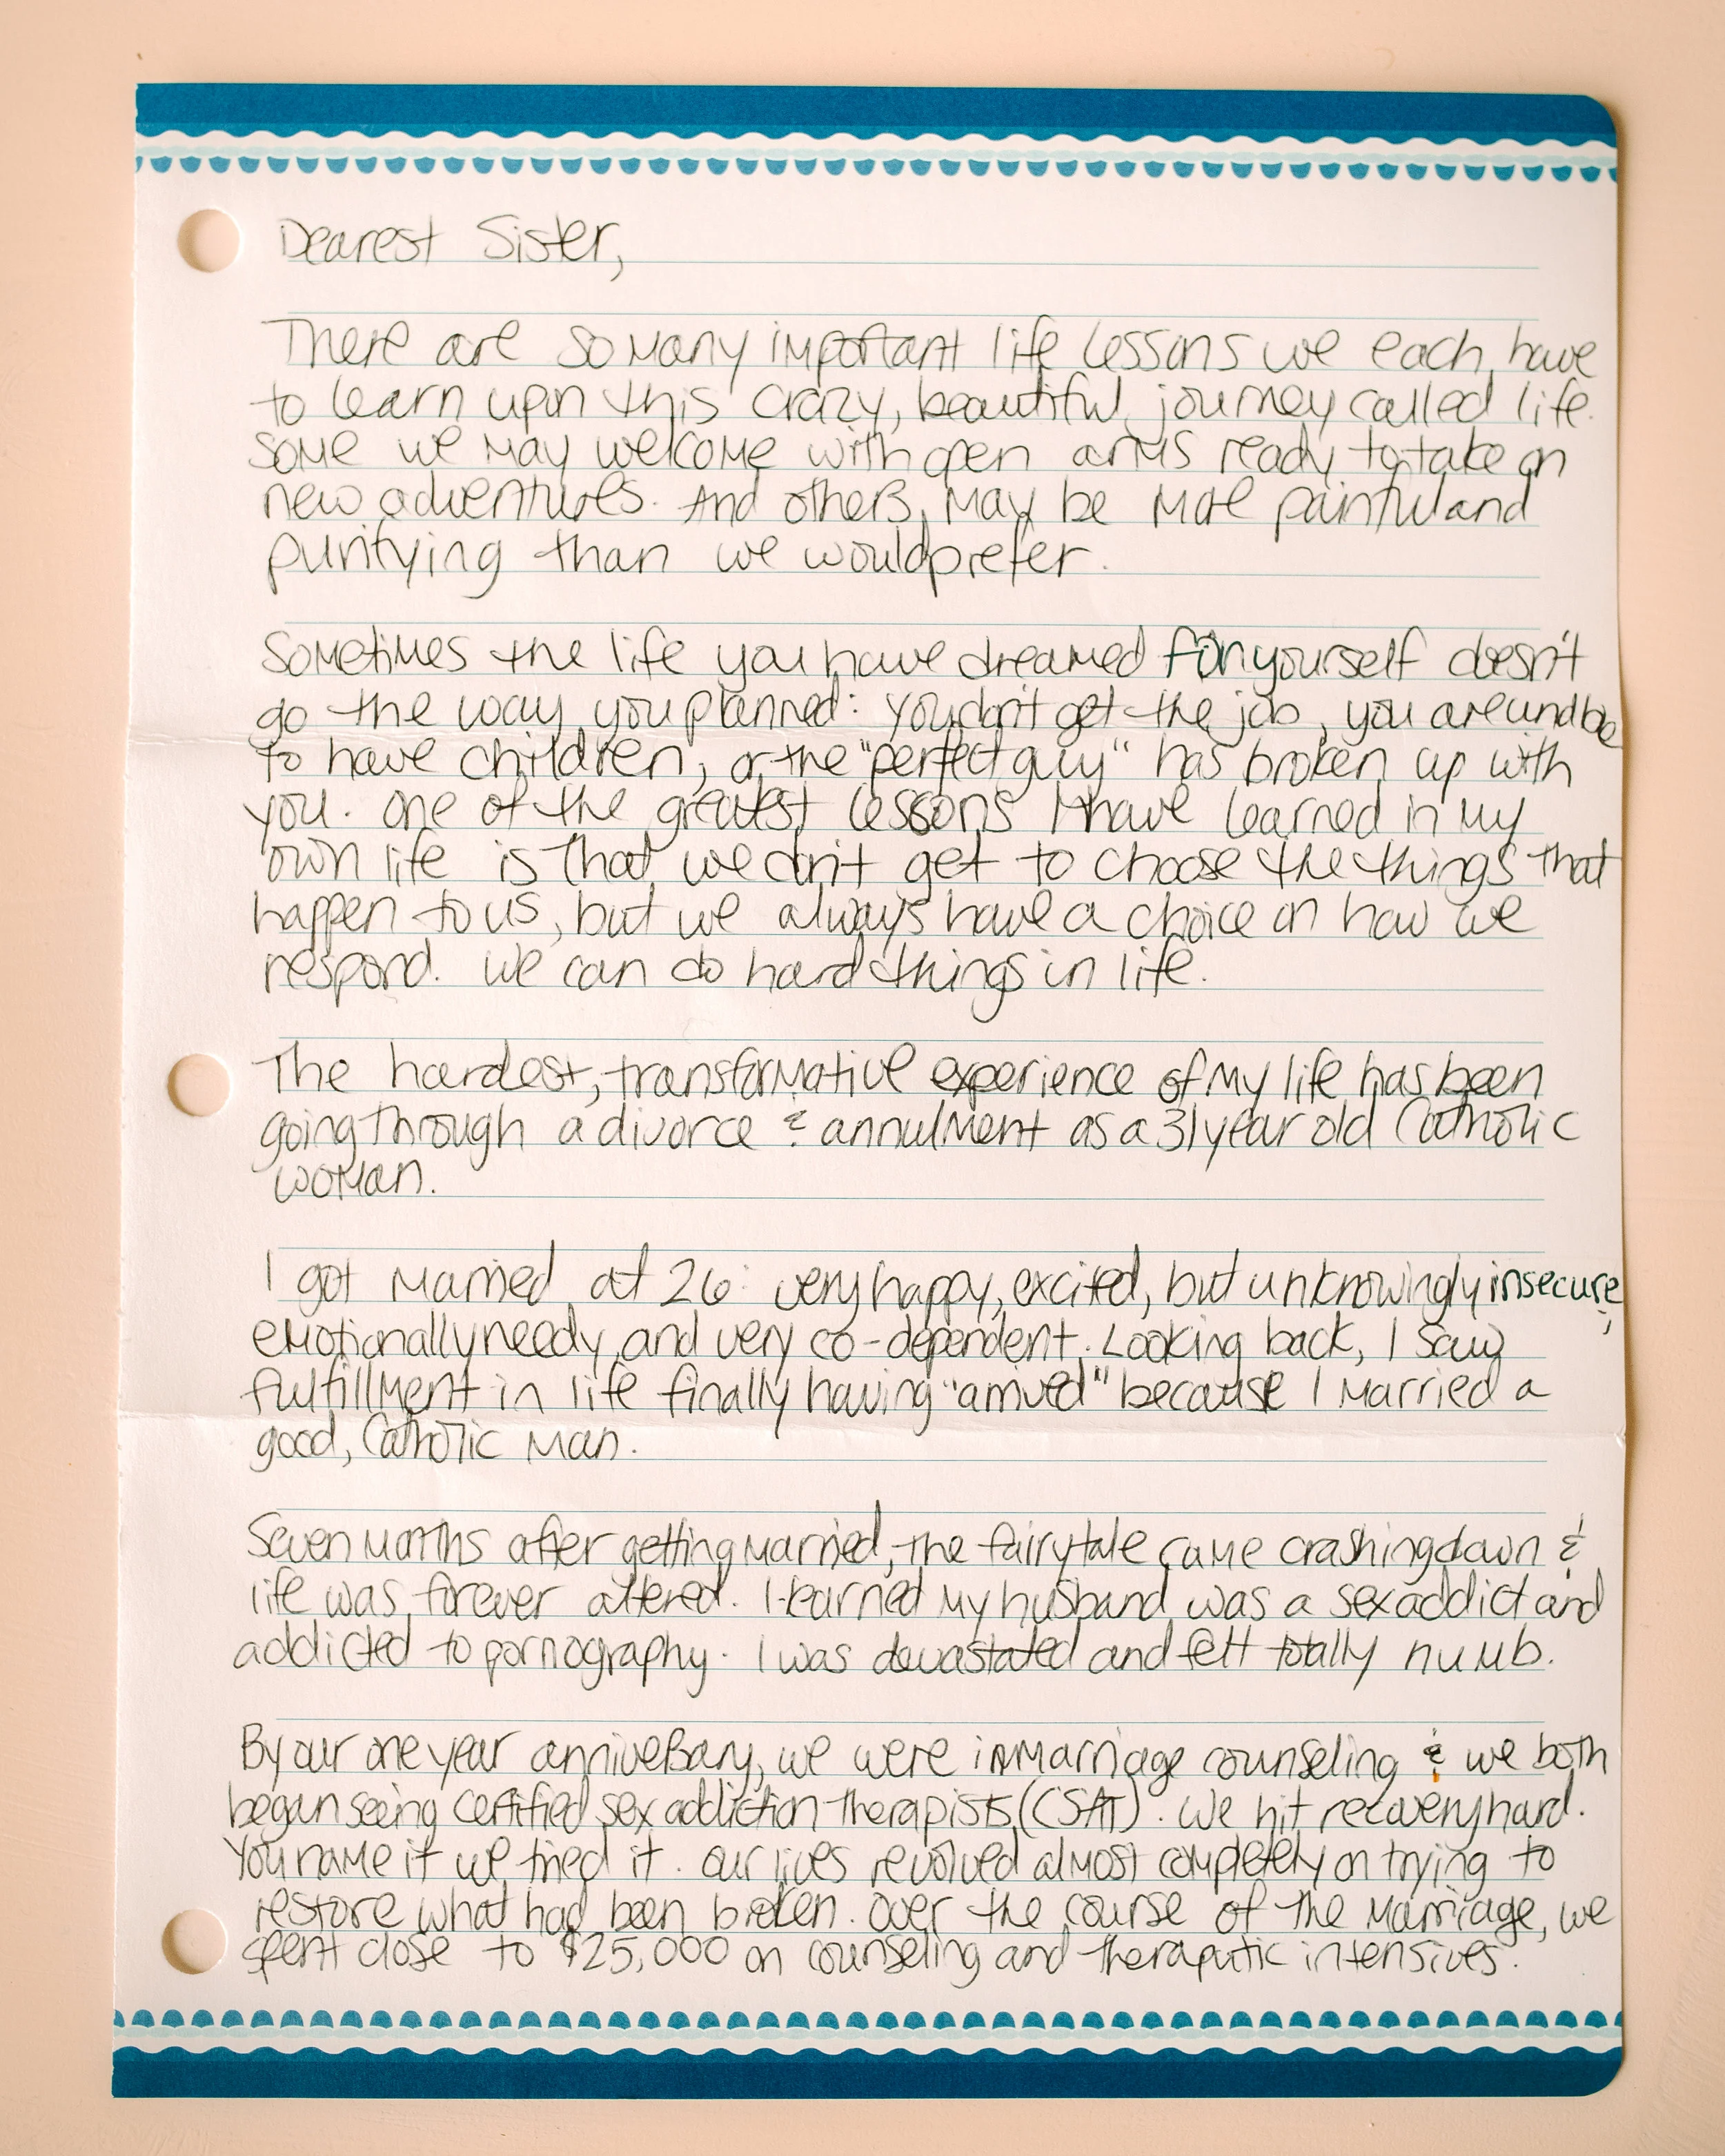 Dearest Sister,
There are so many important life lessons we each have
to learn upon this crazy, beautiful journey called life.
Some we may welcome with open arms ready to take on
new adventures. And others, may be more painful and
purifying than we would prefer.
Sometimes the life you have dreamed for yourself doesn't
go the way you planned: you don't get the job, you are unable
to have children, or the "perfect guy" has broken up with
you. One of the greatest lessons I have learned in my
own life is that we don't get to choose the things that
happen to us, but we always have a choice on how we
respond. We can do hard things in life.
The hardest, transformative experience of my life has been
going through a divorce & annulment as a 31 year old Catholic
woman.
I got married at 26: very happy, excited, but unknowingly insecure,
emotionally needy, and very co-dependent. Looking back, I saw
fulfillment in life finally having "arrived" because I married a
good, Catholic man.
Seven months after getting married, the fairytale came crashing down &
life was forever altered. I learned my husband was a sex addict and
addicted to pornography. I was devastated and felt totally numb.
By our one year anniversary, we were in marriage counseling & we both
began seeing certified sex addiction therapists (CSAT). We hit recovery hard.
You name it we tried it. Our lives revolved almost completely on trying to
restore what had been broken. Over the course of the marriage, we
spent close to $25,000 on counseling and theraputic intensives.